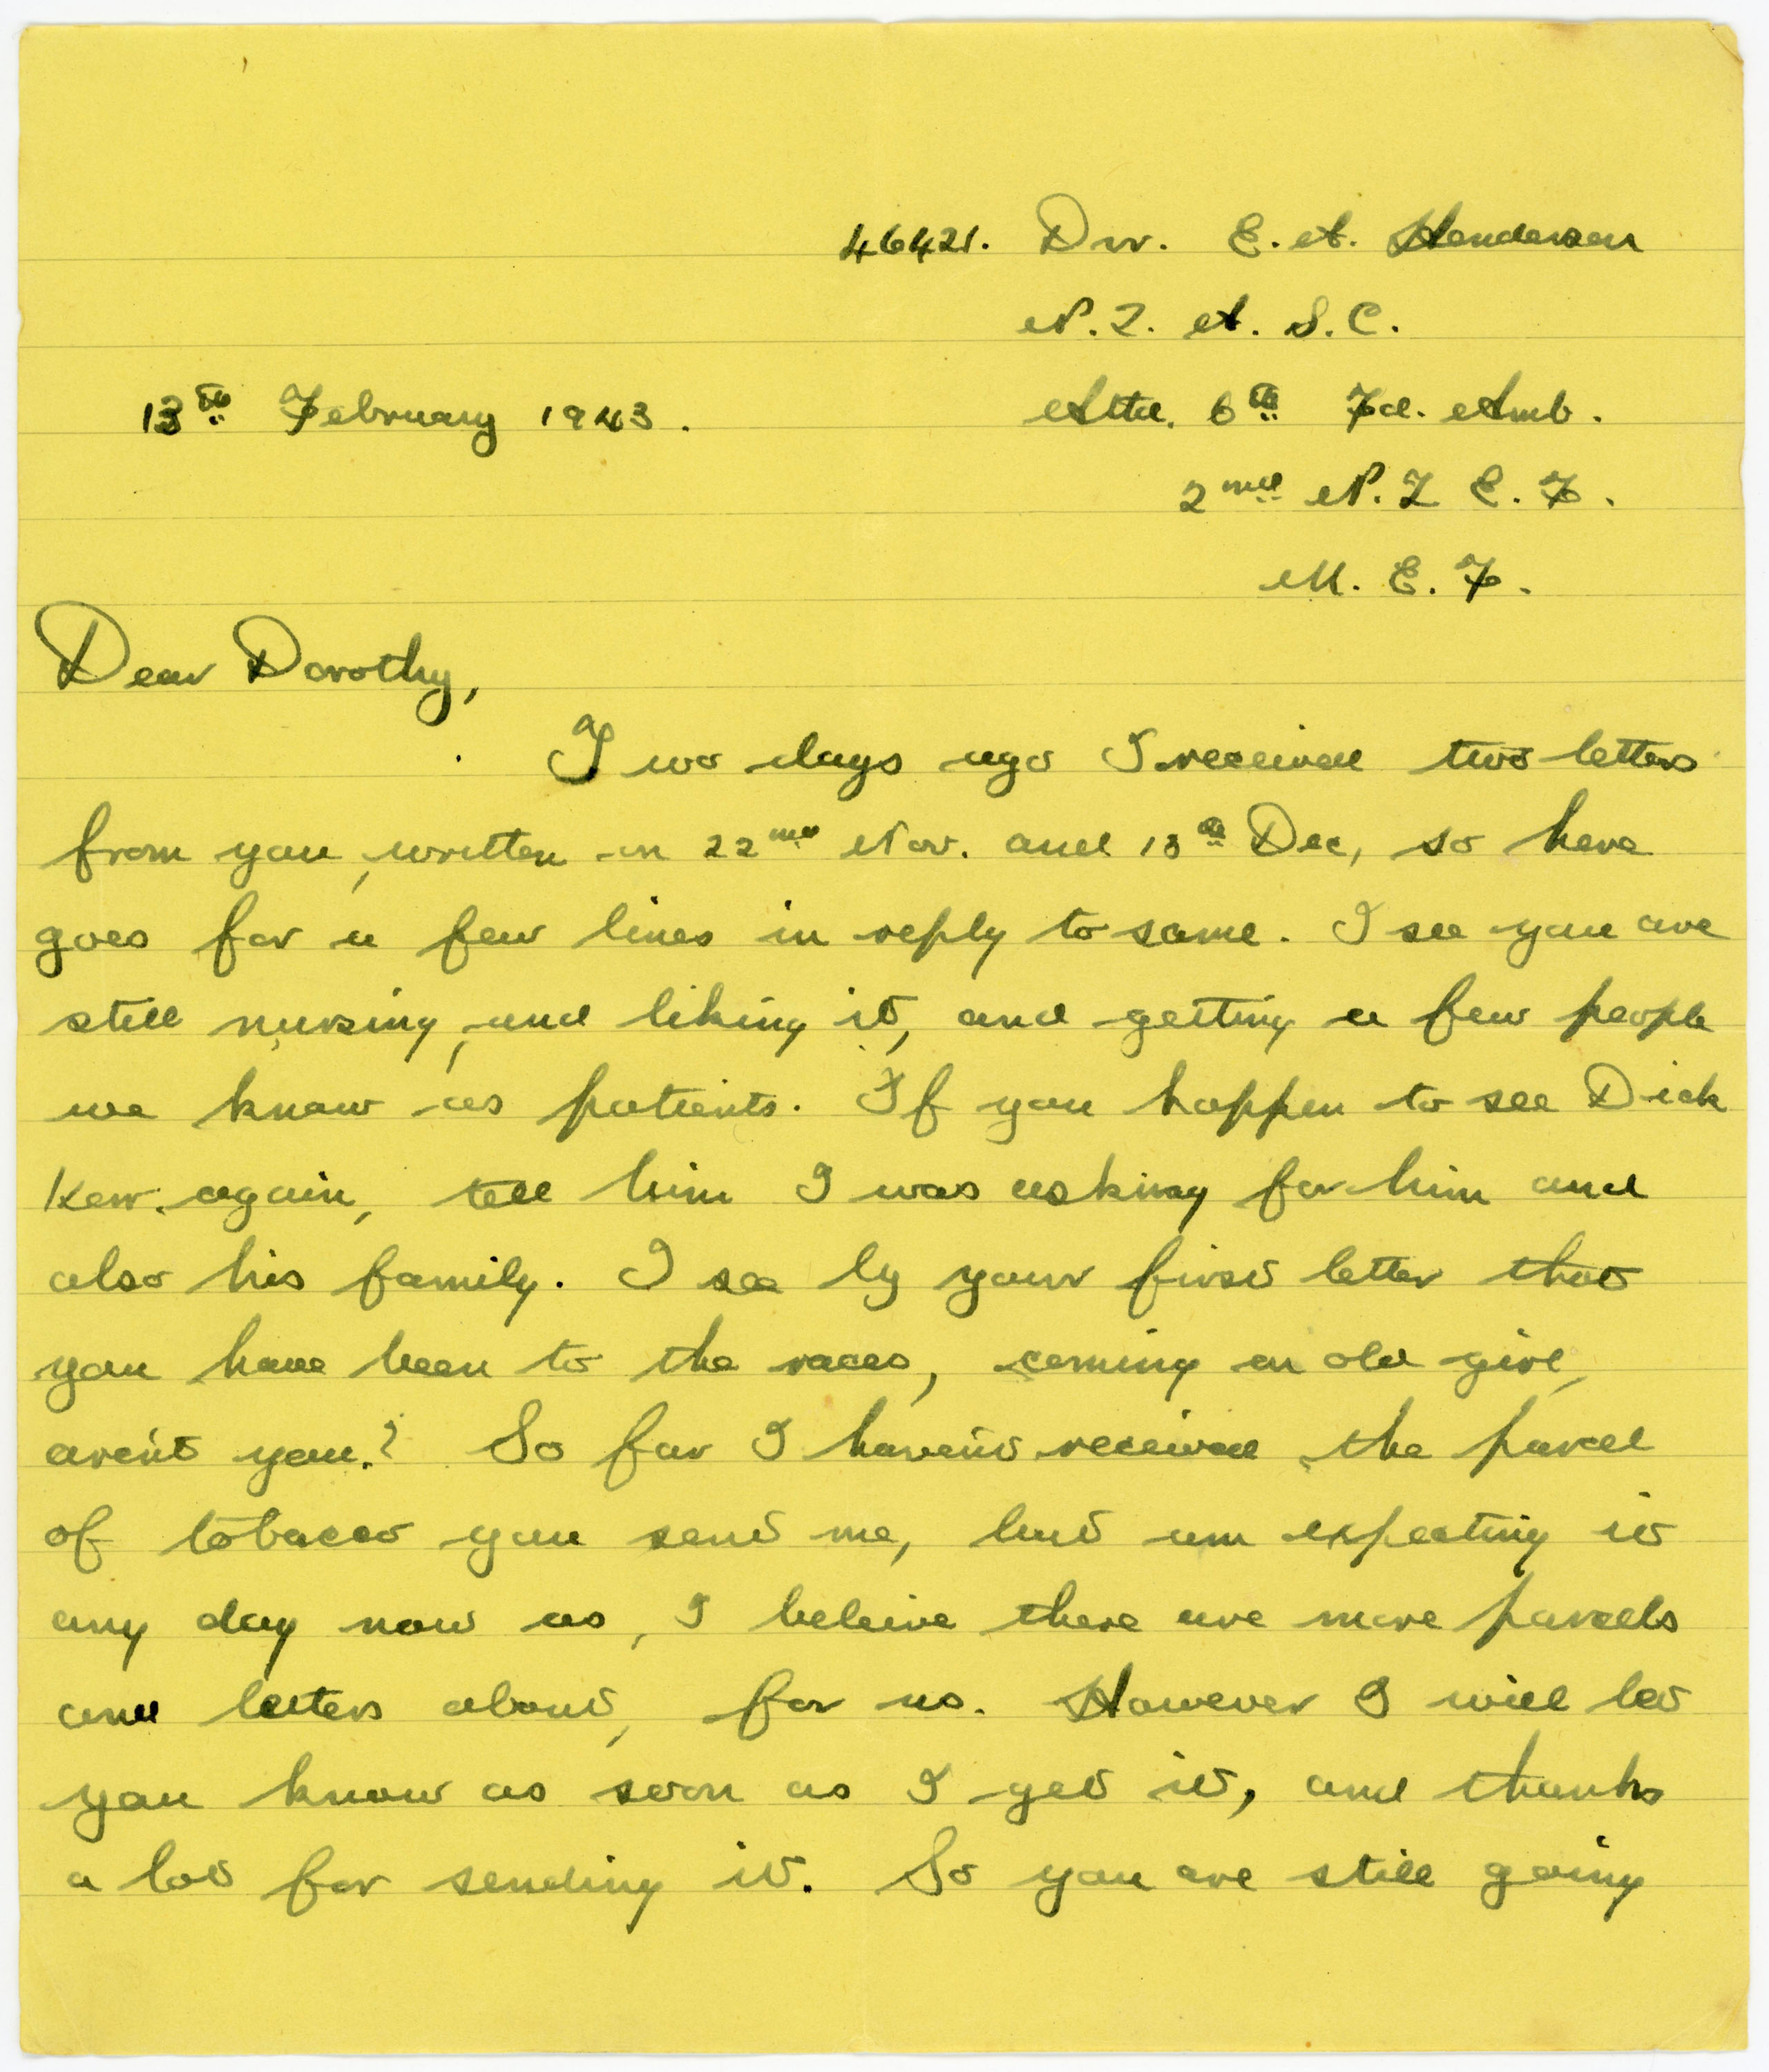 46421. Dvr. E. A. Henderson
N. Z. A. S. C.
13th February 1943. Attd. 6th Fd. Amb.
2nd N. Z E. F.
M. E. F.
Dear Dorothy,
Two days ago I received two letters
from you, written on 22nd Nov. and 13th Dec, so here
goes for a few lines in reply to same. I see you are
still nursing, and liking it, and getting a few people
we know as patients. If you happen to see Dick
Kerr again, tell him I was asking for him and
also his family. I see by your first letter that
you have been to the races, coming an old girl,
aren't you? So far I haven't received the parcel
of tobacco you sent me, but am expecting it
any day now as, I beleive there are more parcels
and letters about, for us. However I will let
you know as soon as I get it, and thanks
a lot for sending it. So you are still going